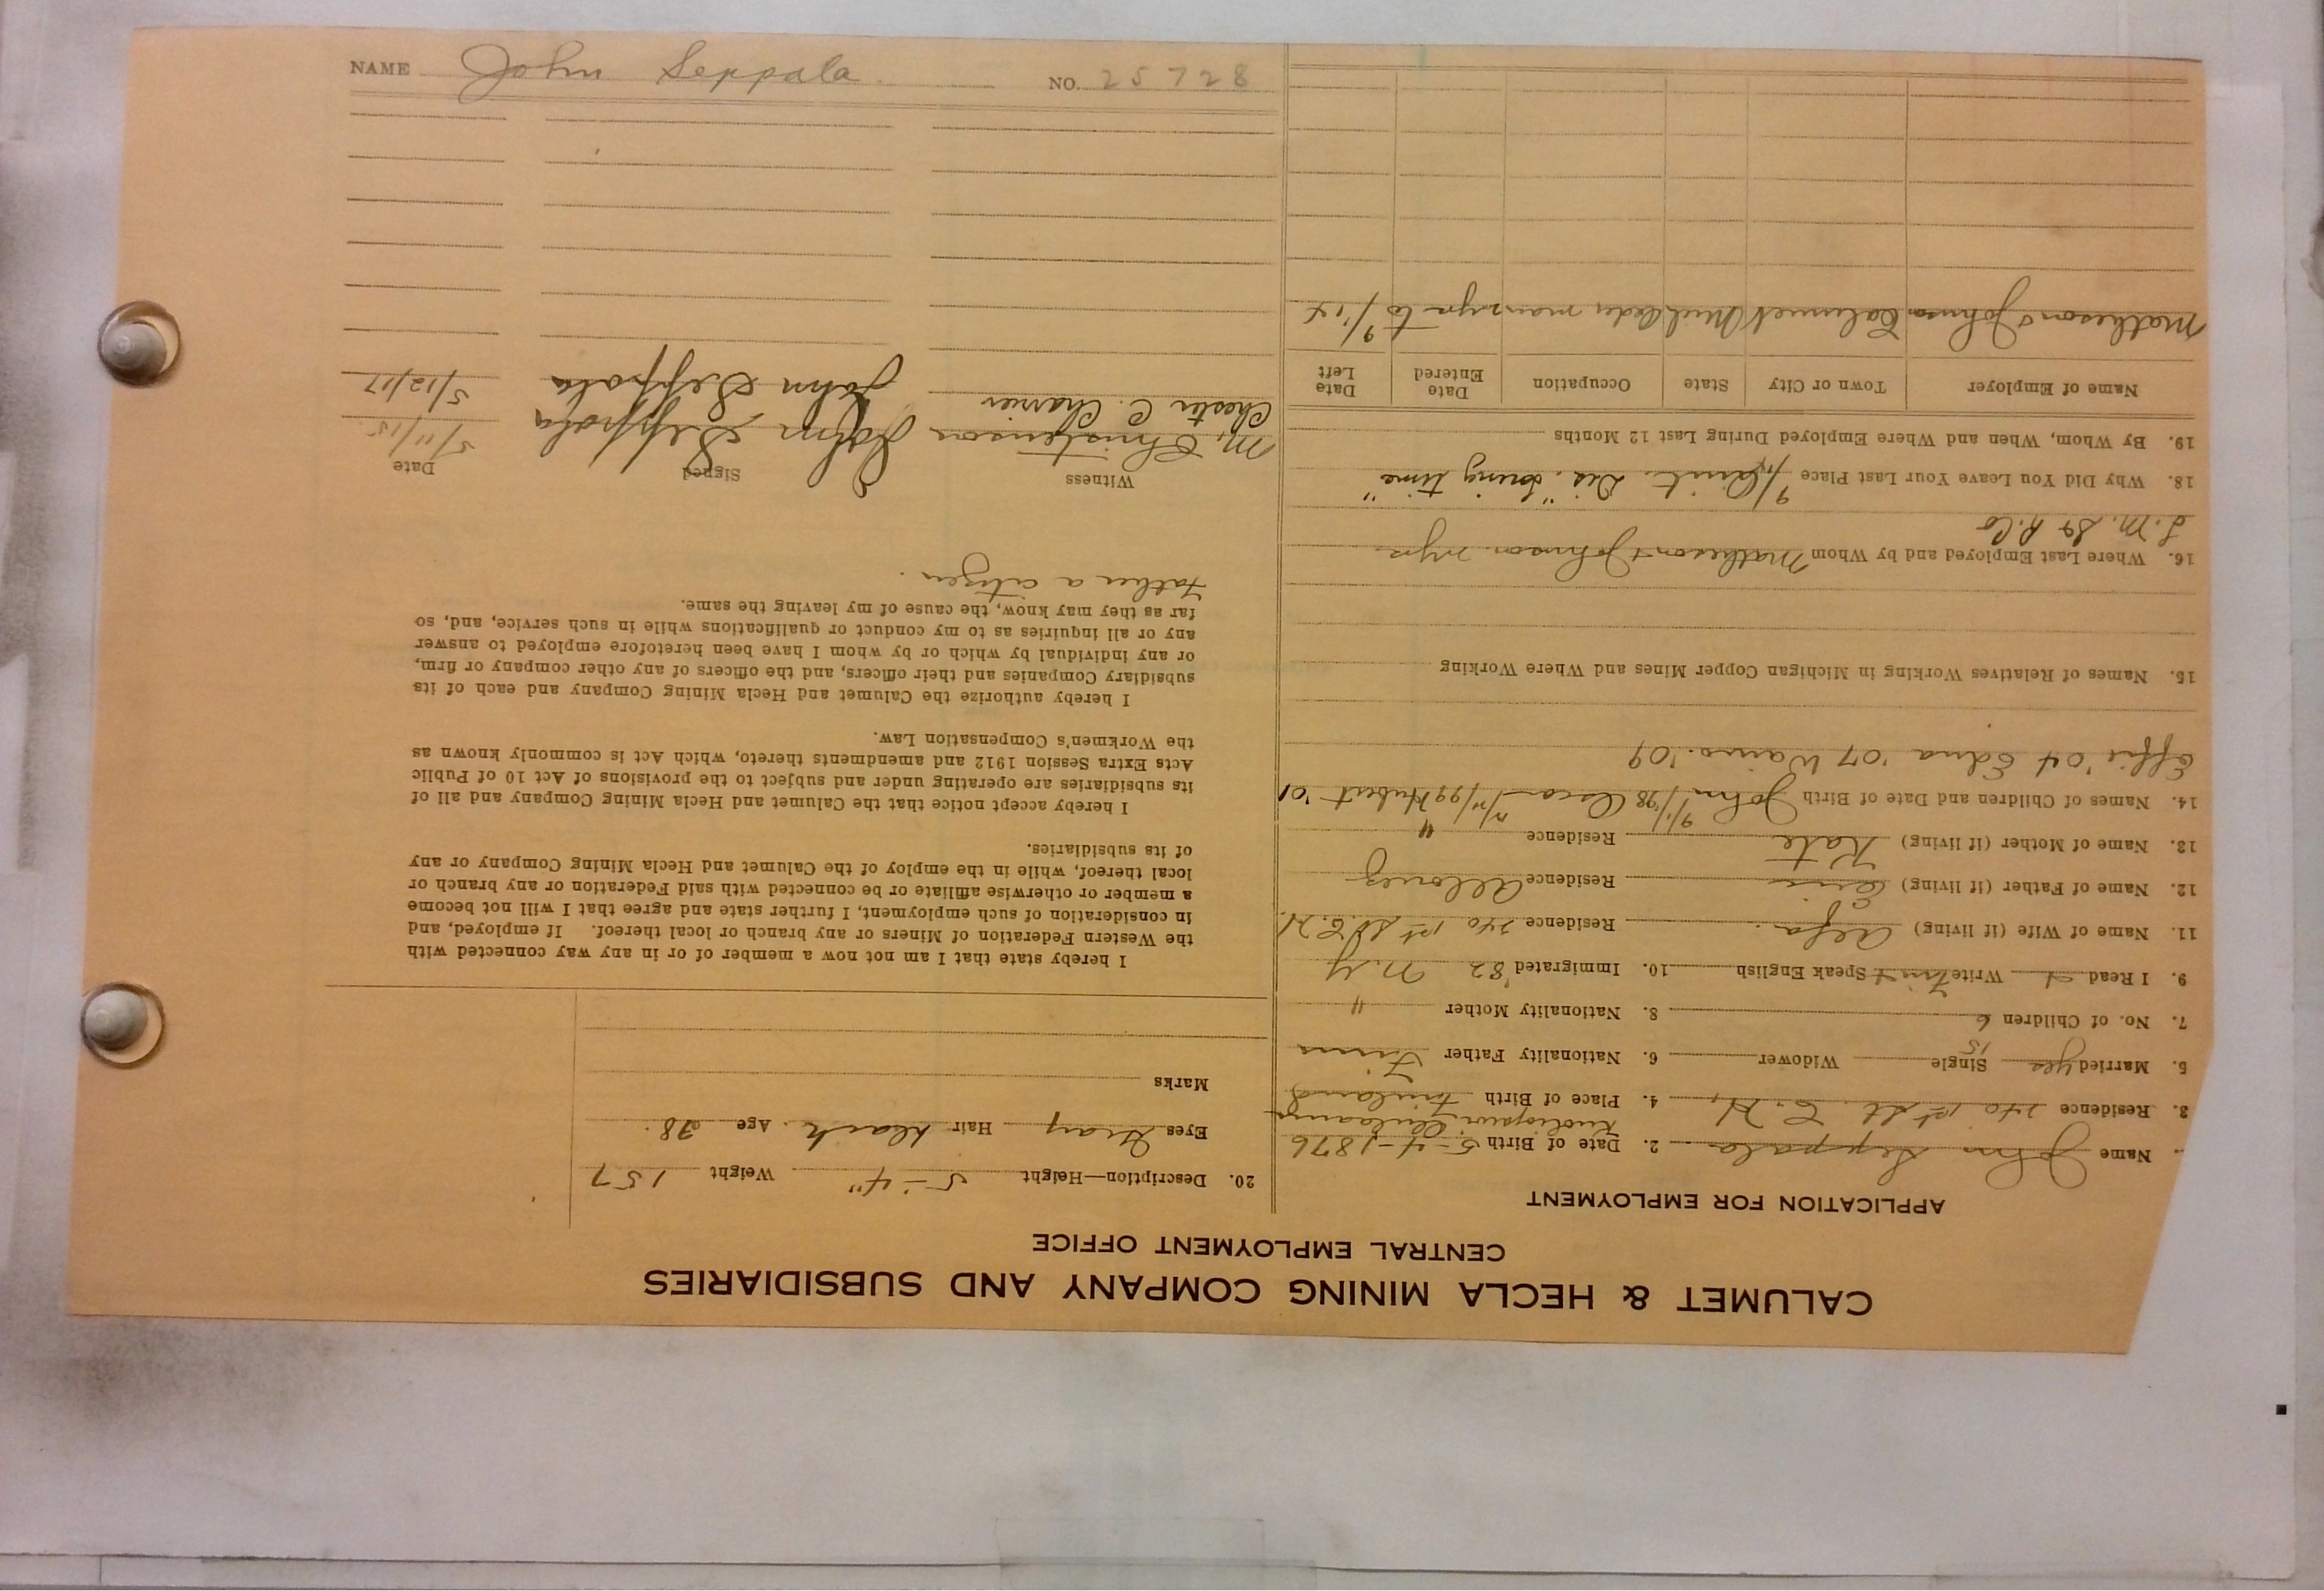 NAME John Seppala NO. 25728
CALUMET & HECLA MINING COMPANY AND SUBSIDIARIES
CENTRAL EMPLOYMENT OFFICE
APPLICATION FOR EMPLOYMENT
Name John Seppala 2. Date of Birth 5-4-1876
3. Residence 240 1st St. C.H, 4. Place of Birth Finland
5. Married yes Single Widower 6. Nationality Father Finn
15
7. No. of Children 6 8. Nationality Mother "
9. I Read Write Speak English 10. Immigrated '82 N.Y
11. Name of Wife (if living) Residence 240 1st St
12. Name of Father (if living) Residence Allouez
13. Name of Mother (if living) Kate Residence "
14. Names of Children and Date of Birth John 9/1/98 Oscar /99 Hubert '01
Effie '04 Edna '07 Waino '09
15. Names of Relatives Working in Michigan Copper Mines and Where Working
16. Where Last Employed and by Whom Matheson & Johnson
18. Why Did You Leave Your Last Place 9/14 Quit. Dis. "losing time"
19. By Whom, When and Where Employed During Last 12 Months
Name of Employer Town or City State Occupation Date Entered Date Left
Matheson & Johnson Calumet Mich to 9/14
20. Description—Height 5-4" Weight 157
Eyes Gray Hair black Age 38.
Marks
I hereby state that I am not now a member of or in any way connected with
the Western Federation of Miners or any branch or local thereof. If employed, and
in consideration of such employment, I further state and agree that I will not become
a member or otherwise affiliate or be connected with said Federation or any branch or
local thereof, while in the employ of the Calumet and Hecla Mining Company or any
of its subsidiaries.
I hereby accept notice that the Calumet and Hecla Mining Company and all of
its subsidiaries are operating under and subject to the provisions of Act 10 of Public
Acts Extra Session 1912 and amendments thereto, which Act is commonly known as
the Workmen's Compensation Law.
I hereby authorize the Calumet and Hecla Mining Company and each of its
subsidiary Companies and their officers, and the officers of any other company or firm,
or any individual by which or by whom I have been heretofore employed to answer
any or all inquiries as to my conduct or qualifications while in such service, and, so
far as they may know, the cause of my leaving the same.
Father a citizen.
Witness Signed Date
M. Christenson John Seppala 5/11/15
Chester C. Charrier John Seppala 5/12/17